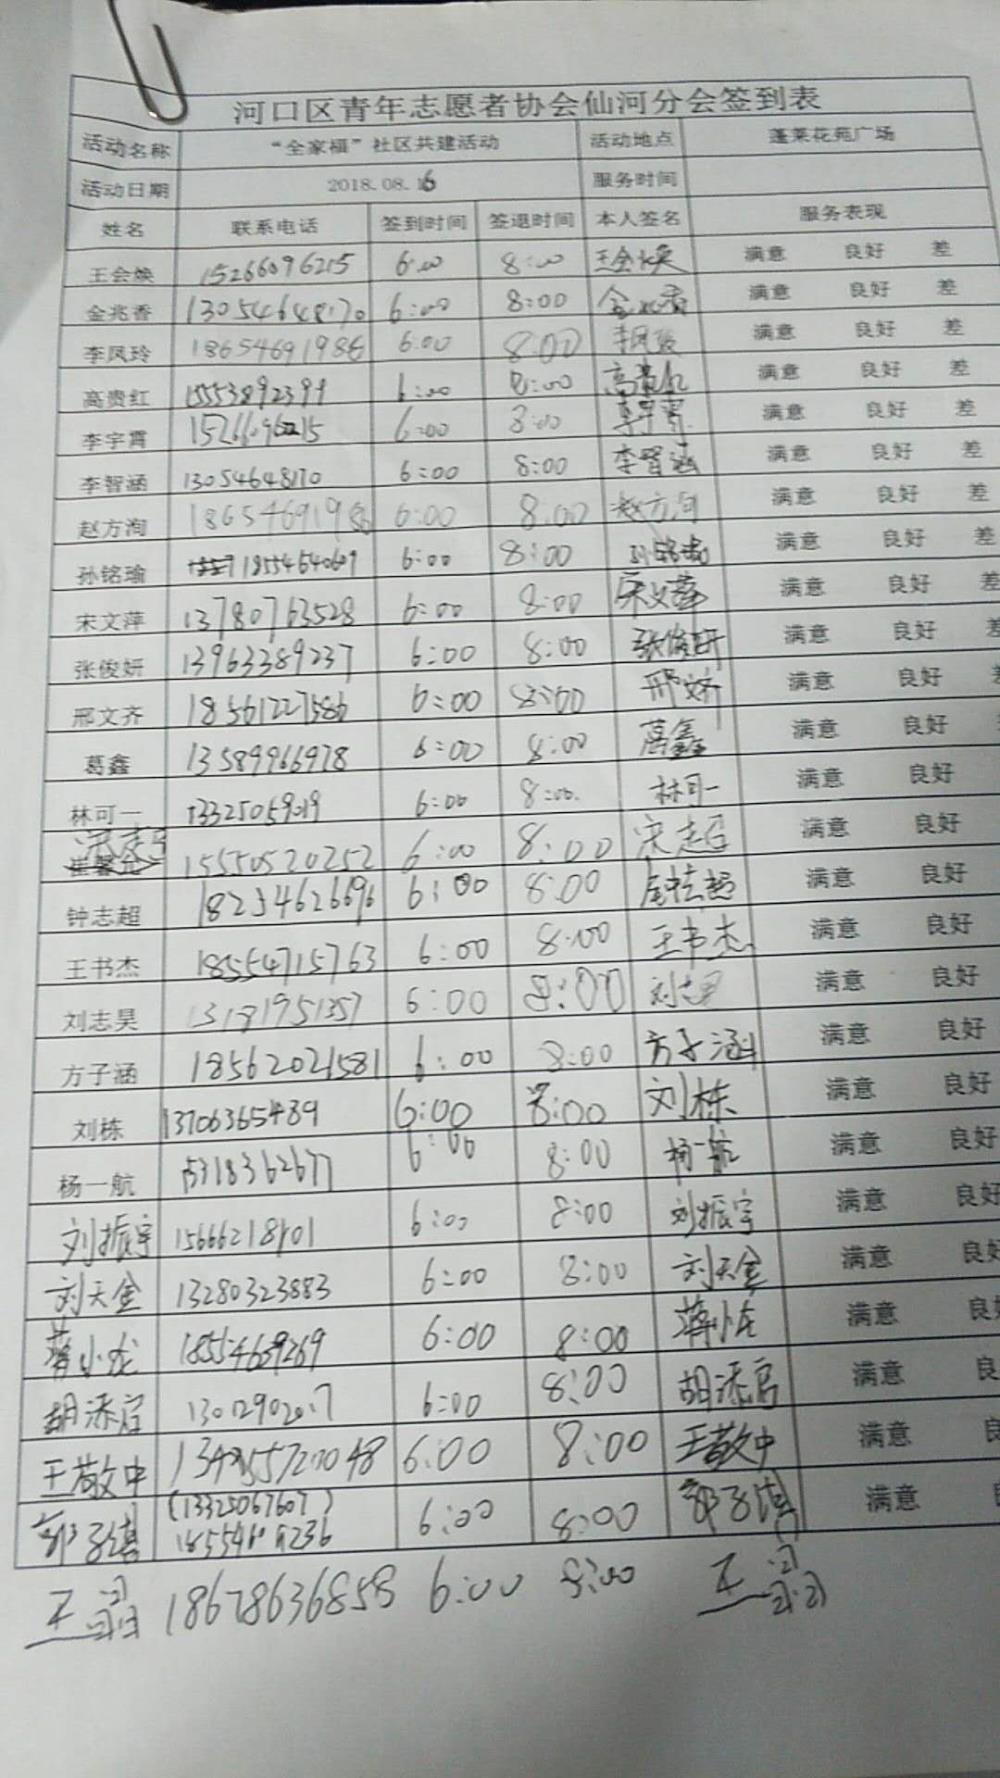 河口区青年志愿者协会仙河分会签到表
活动名称 “全家福”社区共建活动 活动地点 蓬莱花苑广场
活动日期 2018.08.16 服务时间
姓名 联系电话 签到时间 签退时间 本人签名 服务表现
王会焕 15266096215 6:00 8:00 王会焕 满意 良好 差
金兆香 13054648170 6:00 8:00 金兆香 满意 良好 差
李凤玲 18654691986 6:00 8:00 满意 良好 差
高贵红 15553892399 6:00 8:00 高贵红 满意 良好 差
李宇霄 15266096215 6:00 8:00 李宇霄 满意 良好 差
李智涵 13054648170 6:00 8:00 李智涵 满意 良好 差
赵方洵 18654691986 6:00 8:00 赵方洵 满意 良好 差
孙铭瑜 18554640609 6:00 8:00 孙铭瑜 满意 良好 差
宋文萍 13780763528 6:00 8:00 宋文萍 满意 良好 差
张俊妍 13963389237 6:00 8:00 张俊妍 满意 良好 差
邢文齐 18561227586 6:00 8:00 满意 良好
葛鑫 13589966978 6:00 8:00 葛鑫 满意 良好
林可一 13325059019 6:00 8:00 林可一 满意 良好
15550520252 6:00 8:00 满意 良好
钟志超 18234626696 6:00 8:00 满意 良好
王书杰 18554715763 6:00 8:00 王书杰 满意 良好
刘志昊 13181951357 6:00 8:00 刘志昊 满意 良好
方子涵 18562021581 6:00 8:00 方子涵 满意 良好
刘栋 13706365489 6:00 8:00 刘栋 满意 良好
杨一航 15318362677 6:00 8:00 杨一航 满意 良好
刘振宇 15666218101 6:00 8:00 刘振宇 满意 良好
刘天金 13280323883 6:00 8:00 刘天金 满意 良好
蒋小龙 18554609269 6:00 8:00 蒋小龙 满意 良好
胡添启 13012902017 6:00 8:00 胡添启 满意 良
王敬中 6:00 8:00 王敬中 满意
(13325067607) 6:00 8:00 满意
王 18678636858 6:00 8:00 王